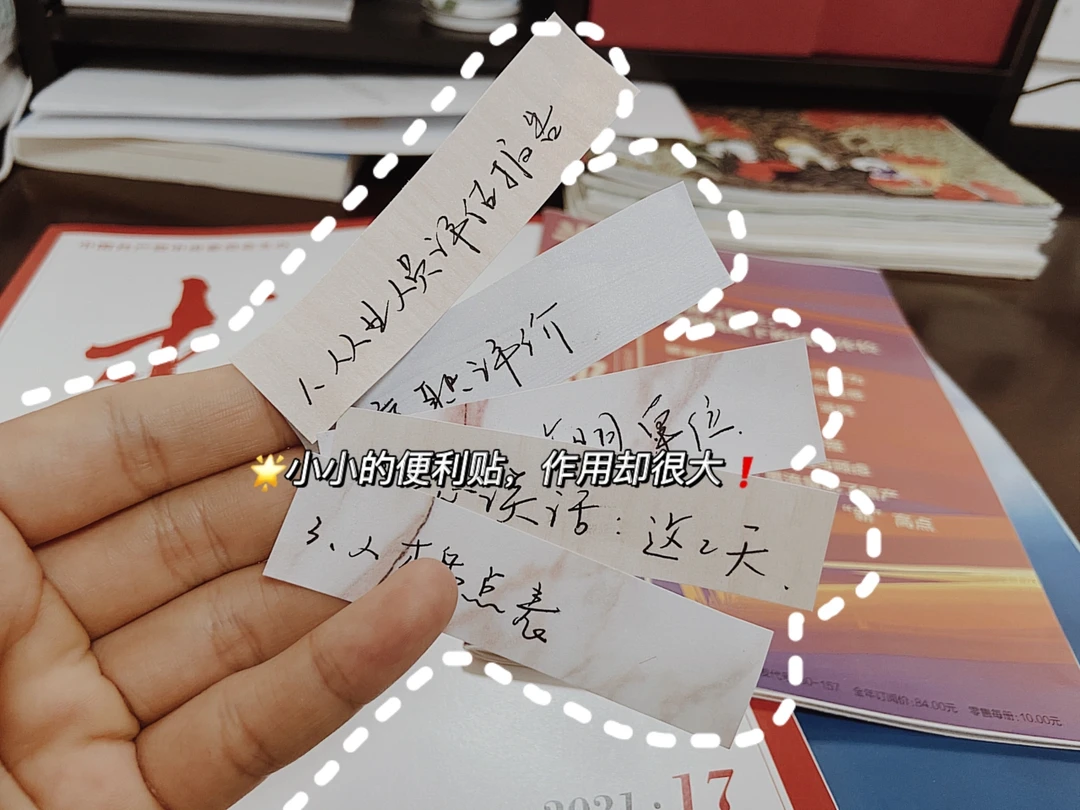 1、从业人员评估报告
职评价
单位.
谈话：这2天.
🌟小小的便利贴，作用却很大❗
3、人才盘点表
"新"高点
全年订阅价:84.00元 零售每册:10.00元
2021·17